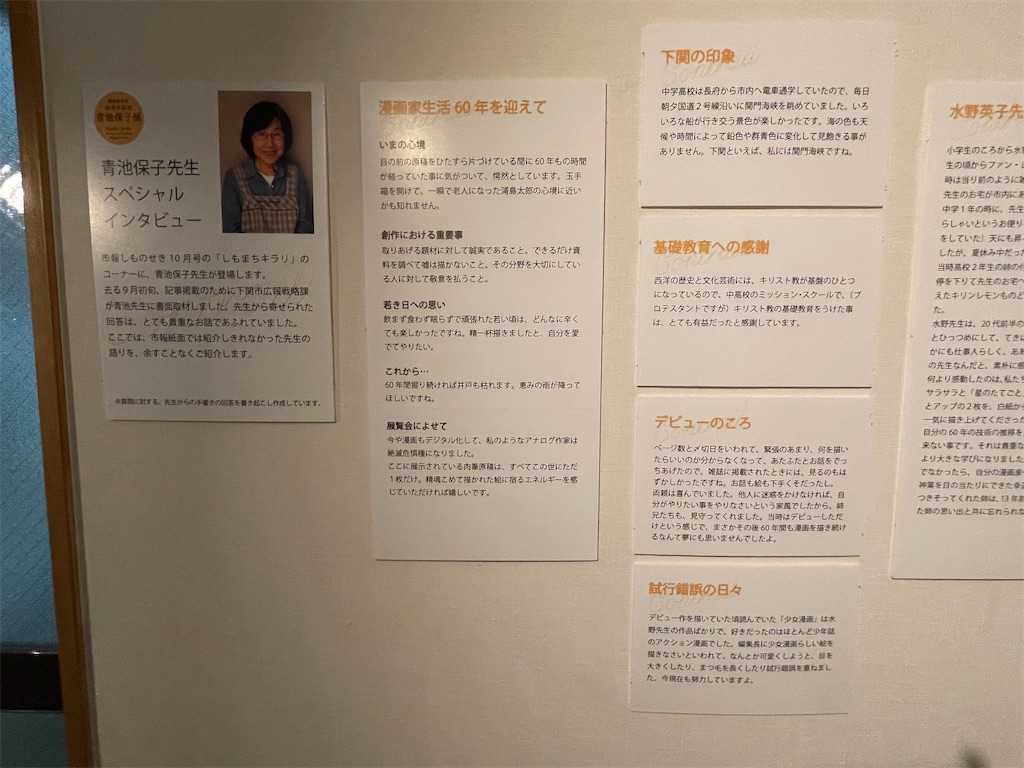 青池保子展
青池保子先生
スペシャル
インタビュー
市報しものせき 10 月号の「しもまちキラリ」の
コーナーに、青池保子先生が登場します。
去る9月初旬、記事掲載のために下関市広報戦略課
が青池先生に書面取材しました。先生から寄せられた
回答は、とても貴重なお話であふれていました。
ここでは、市報紙面では紹介しきれなかった先生の
語りを、余すことなくご紹介します。
※質問に対する、先生からの手書きの回答を書き起こし作成しています。
漫画家生活 60 年を迎えて
いまの心境
目の前の原稿をひたすら片づけている間に 60 年もの時間
が経っていた事に気がついて、愕然としています。玉手
箱を開けて、一瞬で老人になった浦島太郎の心境に近い
かも知れません。
創作における重要事
取りあげる題材に対して誠実であること。できるだけ資
料を調べて嘘は描かないこと。その分野を大切にしてい
る人に対して敬意を払うこと。
若き日への思い
飲まず食わず眠らずで頑張れた若い頃は、どんなに辛く
ても楽しかったですね。精一杯描きましたと、自分を愛
でてやりたい。
これから…
60 年間掘り続ければ井戸も枯れます。恵みの雨が降って
ほしいですね。
展覧会によせて
今や漫画もデジタル化して、私のようなアナログ作家は
絶滅危惧種になりました。
ここに展示されている肉筆原稿は、すべてこの世にただ
1枚だけ。精魂こめて描かれた絵に宿るエネルギーを感
じていただければ嬉しいです。
下関の印象
中学高校は長府から市内へ電車通学していたので、毎日
朝夕国道2号線沿いに関門海峡を眺めていました。いろ
いろな船が行き交う景色が楽しかったです。海の色も天
候や時間によって鉛色や群青色に変化して見飽きる事が
ありません。下関といえば、私には関門海峡ですね。
基礎教育への感謝
西洋の歴史と文化芸術には、キリスト教が基盤のひとつ
になっているので、中高校のミッション・スクールで、(プ
ロテスタントですが）キリスト教の基礎教育をうけた事
は、とても有益だったと感謝しています。
デビューのころ
ページ数と〆切日をいわれて、緊張のあまり、何を描い
たらいいのか分からなくなって、あたふたとお話をでっ
ちあげたので、雑誌に掲載されたときには、見るのもは
ずかしかったですね。お話も絵も下手くそだったし。
両親は喜んでいました。他人に迷惑をかけなければ、自
分がやりたい事をやりなさいという家風でしたから。姉
兄たちも、見守ってくれました。当時はデビューしただ
けという感じで、まさかその後 60 年間も漫画を描き続け
るなんて夢にも思いませんでしたよ。
試行錯誤の日々
デビュー作を描いていた頃読んでいた「少女漫画」は水
野先生の作品ばかりで、好きだったのはほとんど少年誌
のアクション漫画でした。編集長に少女漫画らしい絵を
描きなさいといわれて、なんとか可愛くしようと、目を
大きくしたり、まつ毛を長くしたり試行錯誤を重ねまし
た。今現在も努力していますよ。
水野英子先
小学生のころから水野
生の頃からファン・
時は当り前のように雑
先生のお宅が市内にあ
中学1年の時に、先生
らっしゃいというお便り
をしていた）天にも昇
したが、夏休み中だっ
当時高校2年生の姉の付
停を下りて先生のお宅へ
えたキリンレモンものど
た。
水野先生は、20 代前半の
とひっつめにして、てきぱ
かにも仕事人らしく、ああ
の先生なんだと、素朴に感
何より感動したのは、私たち
サラサラと「星のたてごと」
とアップの2枚を、白紙から
一気に描き上げてくださった
自分の 60 年の技術の推移を
来ない事です。それは貴重な
より大きな学びになりました。
でなかったら、自分の漫画家
神業を目の当たりにできた幸運
つきそってくれた姉は、13 年前
た姉の思い出と共に忘れられな